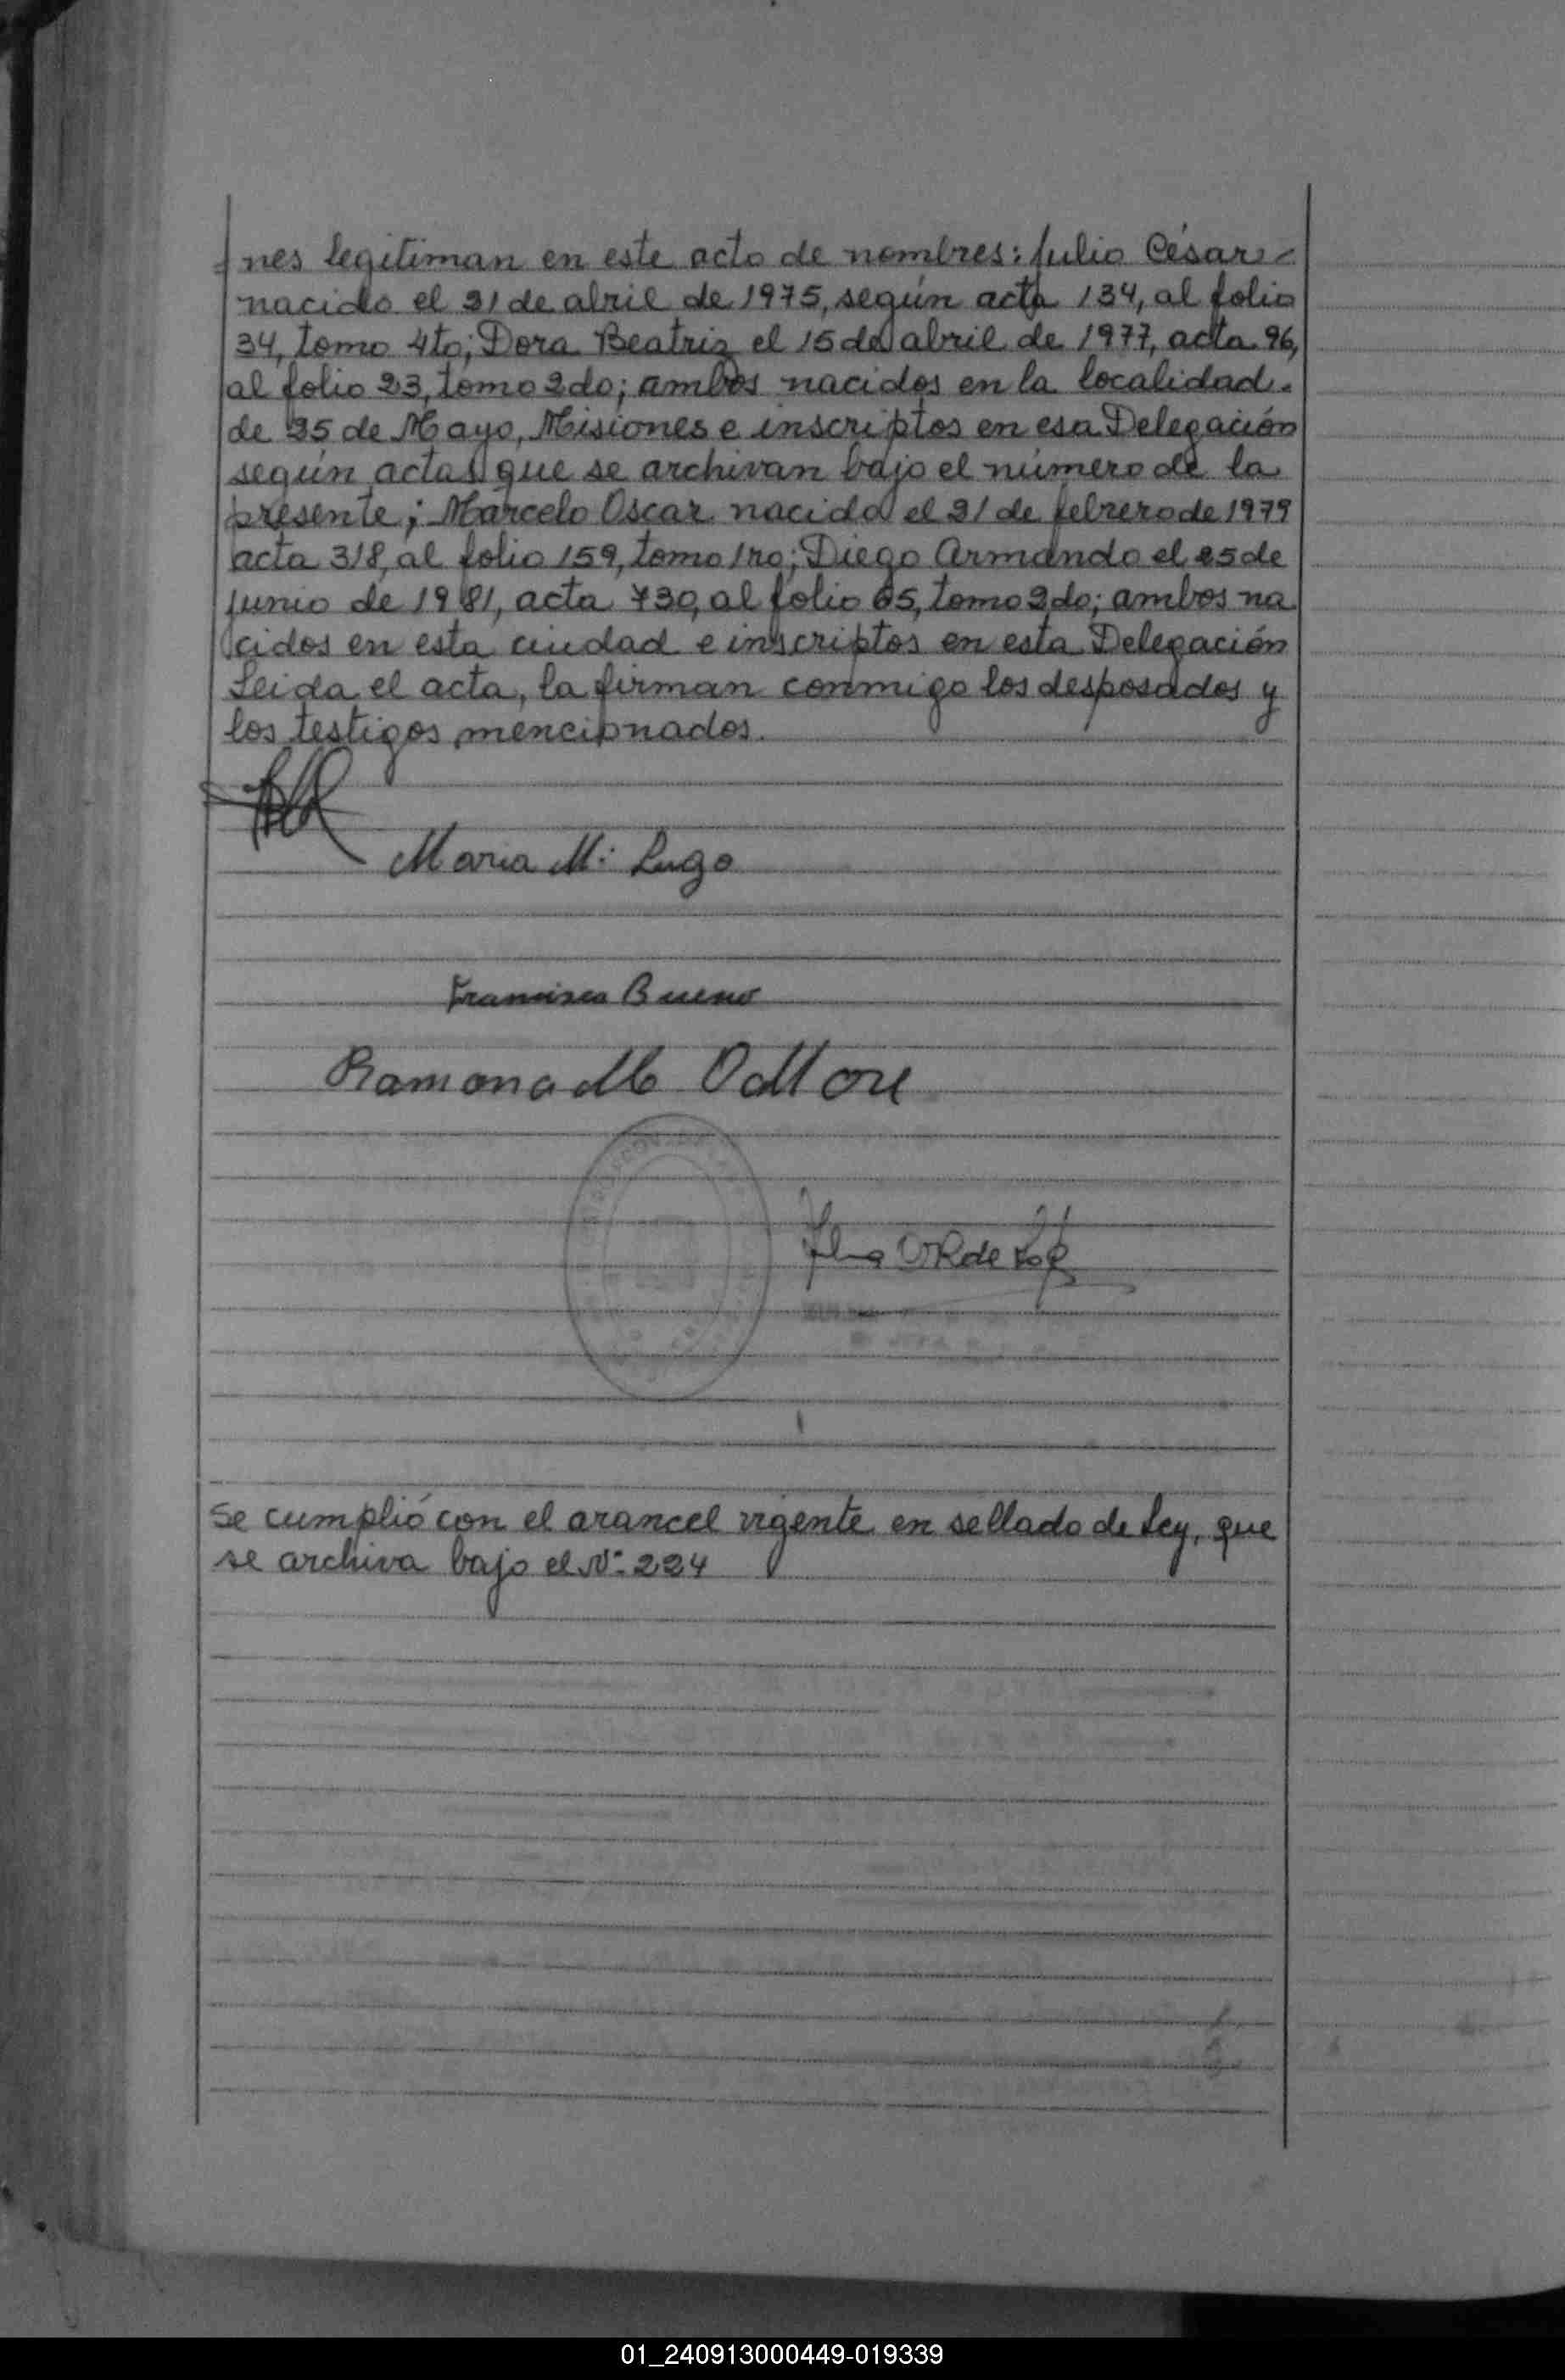 nes legitiman en este acto de nombres: Julio César
nacido el 21 de abril de 1975, según acta 134, al folio
34, tomo 4to; Dora Beatriz el 15 de abril de 1977, acta 96,
al folio 23, tomo 2do; ambos nacidos en la localidad
de 25 de Mayo, Misiones e inscriptos en esa Delegación
según actas que se archivan bajo el número de la
presente; Marcelo Oscar nacido el 21 de febrero de 1979
acta 318, al folio 159, tomo 1ro; Diego Armando el 25 de
junio de 1981, acta 730, al folio 65, tomo 2do; ambos na
cidos en esta ciudad e inscriptos en esta Delegación
Leida el acta, la firman conmigo los desposados y
los testigos mencionados.
Maria M. Lugo
Francisco Bueno
Ramona
Se cumplió con el arancel vigente en sellado de Ley, que
se archiva bajo el Nº 224
01_240913000449-019339